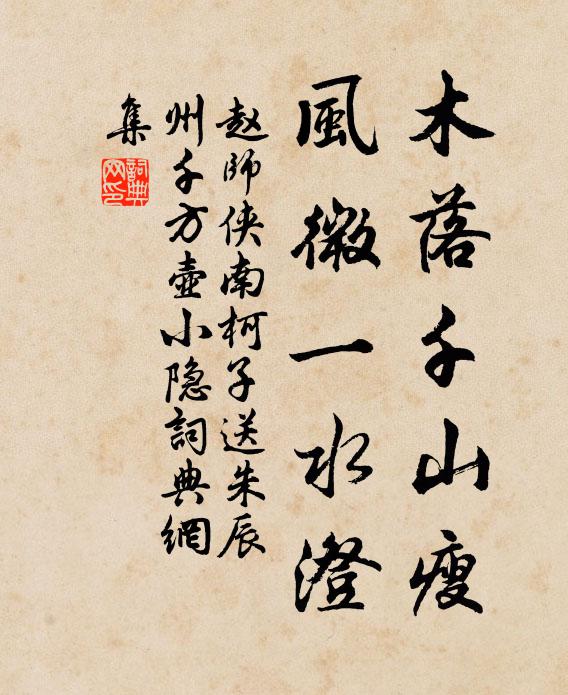 木落千山瘦
風微一水澄
赵師侠南柯子送朱辰
州千方壺小隐詞典網
集
詞典
网印